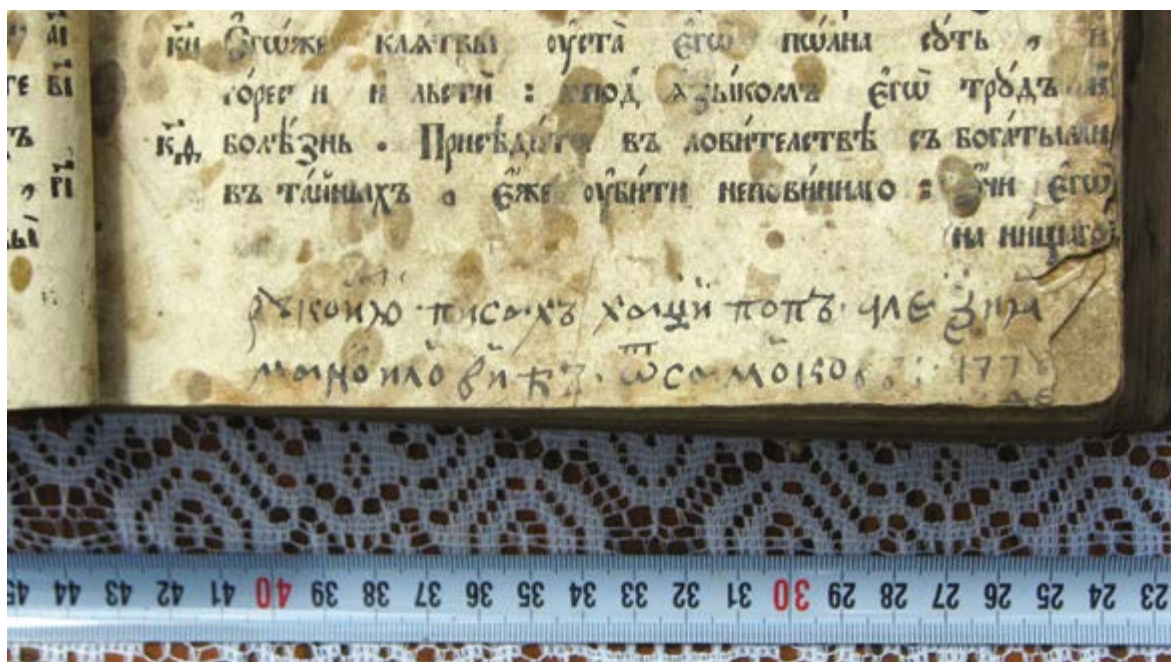 аі
ки Егѡ́же клѧ́твы оуста̀ єгѡ̀ пѡ́лна сꙋ́ть , и
те ві
го́рести и ле́сти : под̾ ѧзы́комъ єгѡ̀ трꙋ́дъ и
ъ
кд болѣ́знь . Присѣди́тъ въ лови́телствѣ съ бога́тыми
, гі
въ та́йныхъ . є́же оуби́ти непови́ннаго : ѻ́чи єгѡ̀
ы
на ни́щаго
рꙋкоию писахъ хаџи попъ алеѯиꙗ
маноиловикъ ѿ самоков 177
45 44 43 42 41 40 39 38 37 36 35 34 33 32 31 30 29 28 27 26 25 24 23